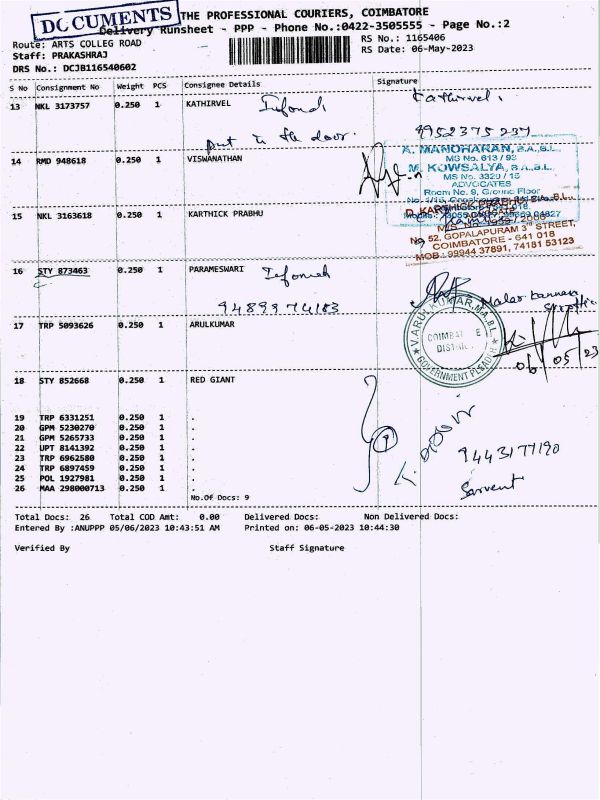 DOCUMENTS
THE PROFESSIONAL COURIERS, COIMBATORE
Delivery Runsheet - PPP - Phone No.:0422-3505555 - Page No.:2
Route: ARTS COLLEG ROAD
RS No.: 1165406
Staff: PRAKASHRAJ
RS Date: 06-May-2023
DRS No.: DCJB116540602
S No Consignment No Weight PCS Consignee Details Signature
13 NKL 3173757 0.250 1 KATHIRVEL
Kathirvel.
put in the door.
9952375237
14 RMD 948618 0.250 1 VISWANATHAN
A. MANOHARAN, B.A.,B.L.
MS No. 613 / 93
M. KOWSALYA, B.A.,B.L.
MS No. 3320 / 15
ADVOCATES
Room No. 9, Ground Floor
15 NKL 3163618 0.250 1 KARTHICK PRABHU
D. KARTHICK PRABHU
No 52, GOPALAPURAM 3rd STREET,
COIMBATORE - 641 018
MOB : 99944 37891, 74181 53123
16 STY 873463 0.250 1 PARAMESWARI
17 TRP 5093626 0.250 1 ARULKUMAR
V.ARULKUMAR,M.A,B.L.
GOVERNMENT PLEADER
06/05/23
18 STY 852668 0.250 1 RED GIANT
19 TRP 6331251 0.250 1 .
20 GPM 5230270 0.250 1 .
21 GPM 5265733 0.250 1 .
22 UPT 8141392 0.250 1 .
23 TRP 6962580 0.250 1 .
24 TRP 6897459 0.250 1 .
25 POL 1927981 0.250 1 .
26 MAA 298000713 0.250 1 .
9443177190
No.Of Docs: 9
Total Docs: 26 Total COD Amt: 0.00 Delivered Docs: Non Delivered Docs:
Entered By :ANUPPP 05/06/2023 10:43:51 AM Printed on: 06-05-2023 10:44:30
Verified By Staff Signature